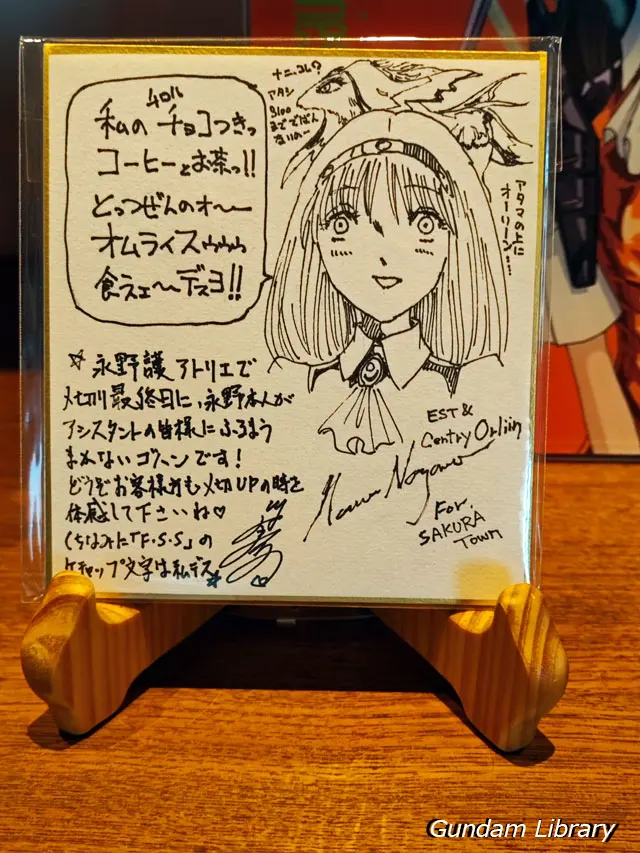 ナニ、コレ?
アタシ
Bloo
までではん
ないのー
私のギョコつきっ
コーヒーとお茶っ!!
とっつぜんのオ〜〜
オムライスゥゥゥ
食えェ〜〜デスヨ!!
アタマの上に
オーリーン…
☆永野護アトリエで
〆切り最終日に、永野本人が
アシスタントの皆様にふるまう
まかないゴハンです!
どうぞお客様方も〆切UPの時を
体感して下さいね♡
(ちなみに「F.S.S」の
ケチャップ文字は私デス
EST &
Centry Orliin
For.
SAKURA
Town
Gundam Library